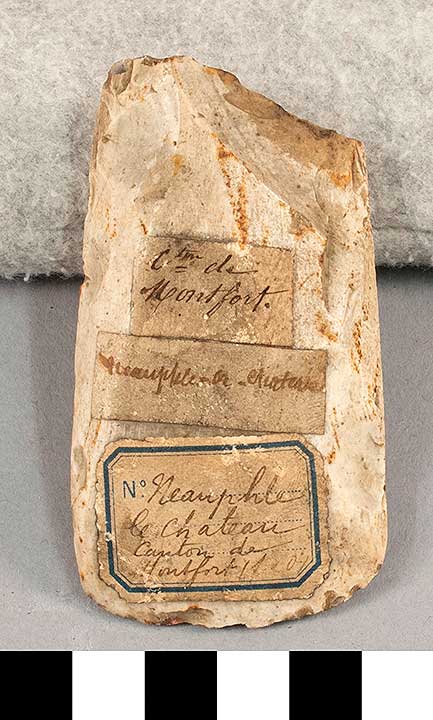 Cton de
Montfort.
Neauphle-le-Chateau
N° Neauphle
le chateau
Canton de
Montfort